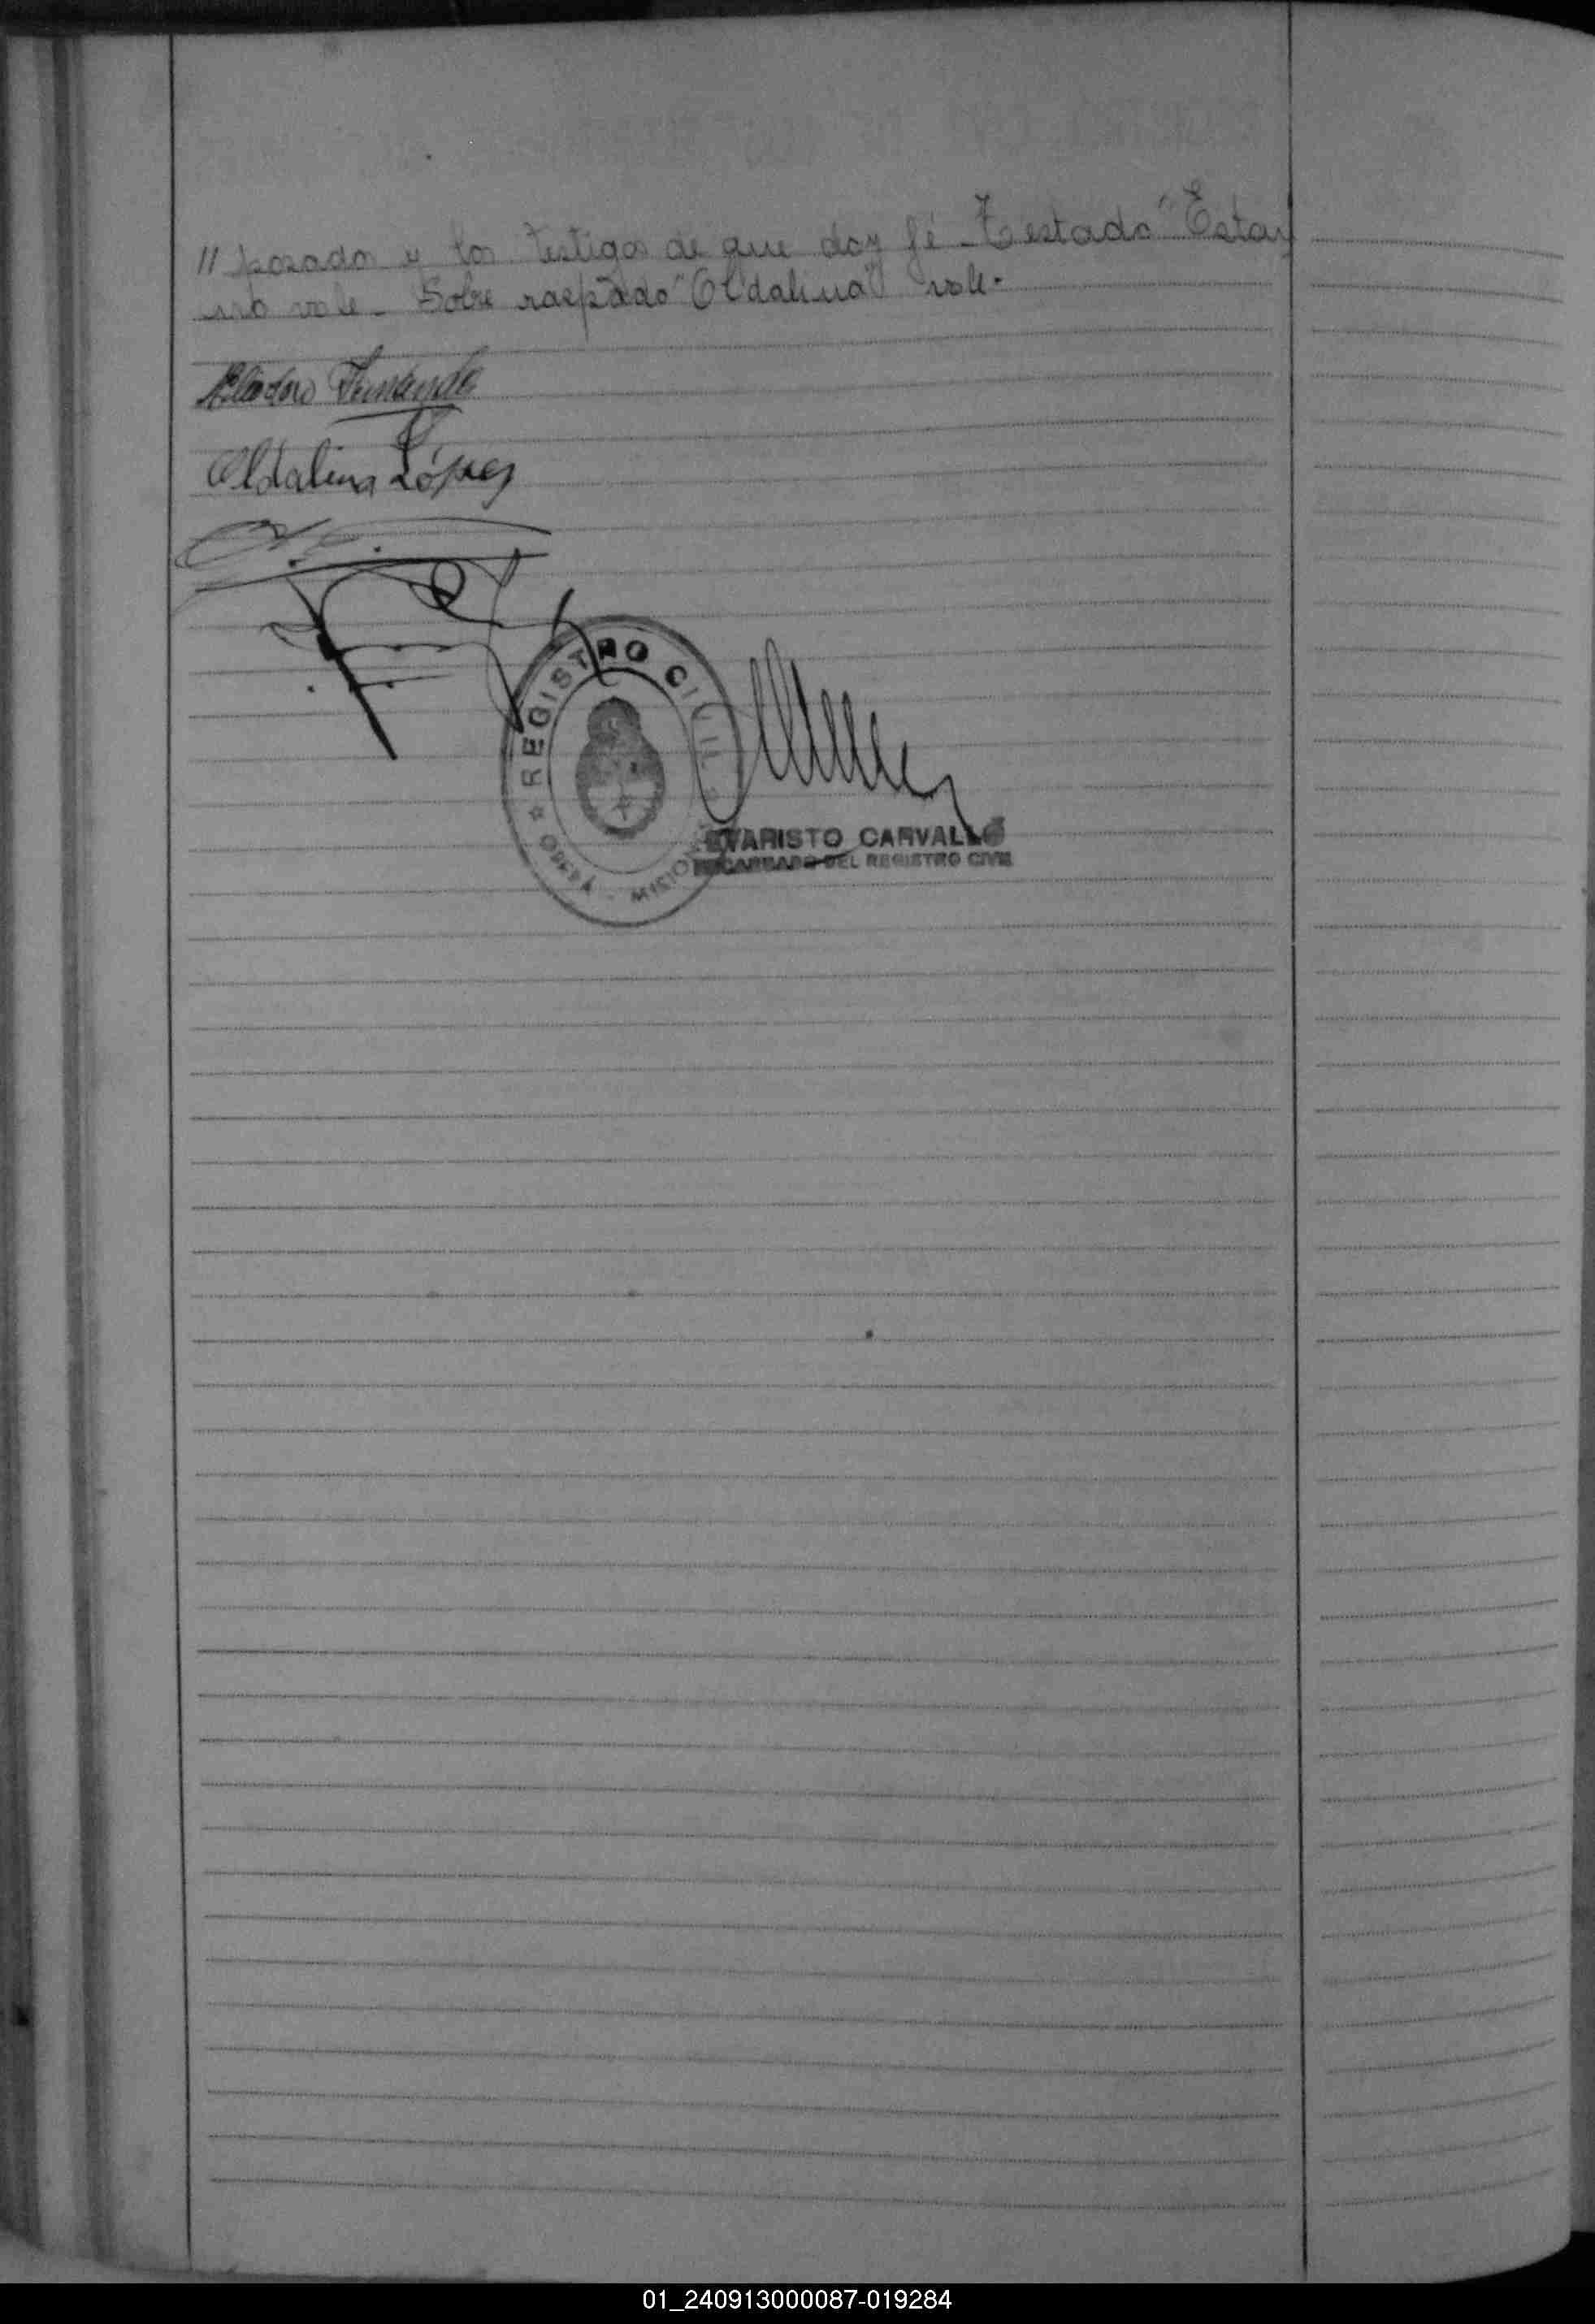 // posados y los testigos de que doy fé - Testado "Estay
no vale - Sobre raspado "Oldalina" vale.
Fernandez
Oldalina López
REGISTRO CIVIL
OBERÁ - MISIONES
EVARISTO CARVALLO
ENCARGADO DEL REGISTRO CIVIL
01_240913000087-019284